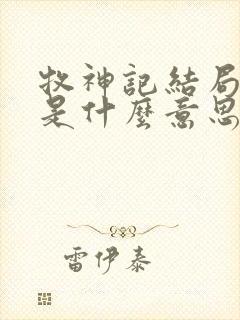 牧神記結局
是什麼意思
雷伊泰